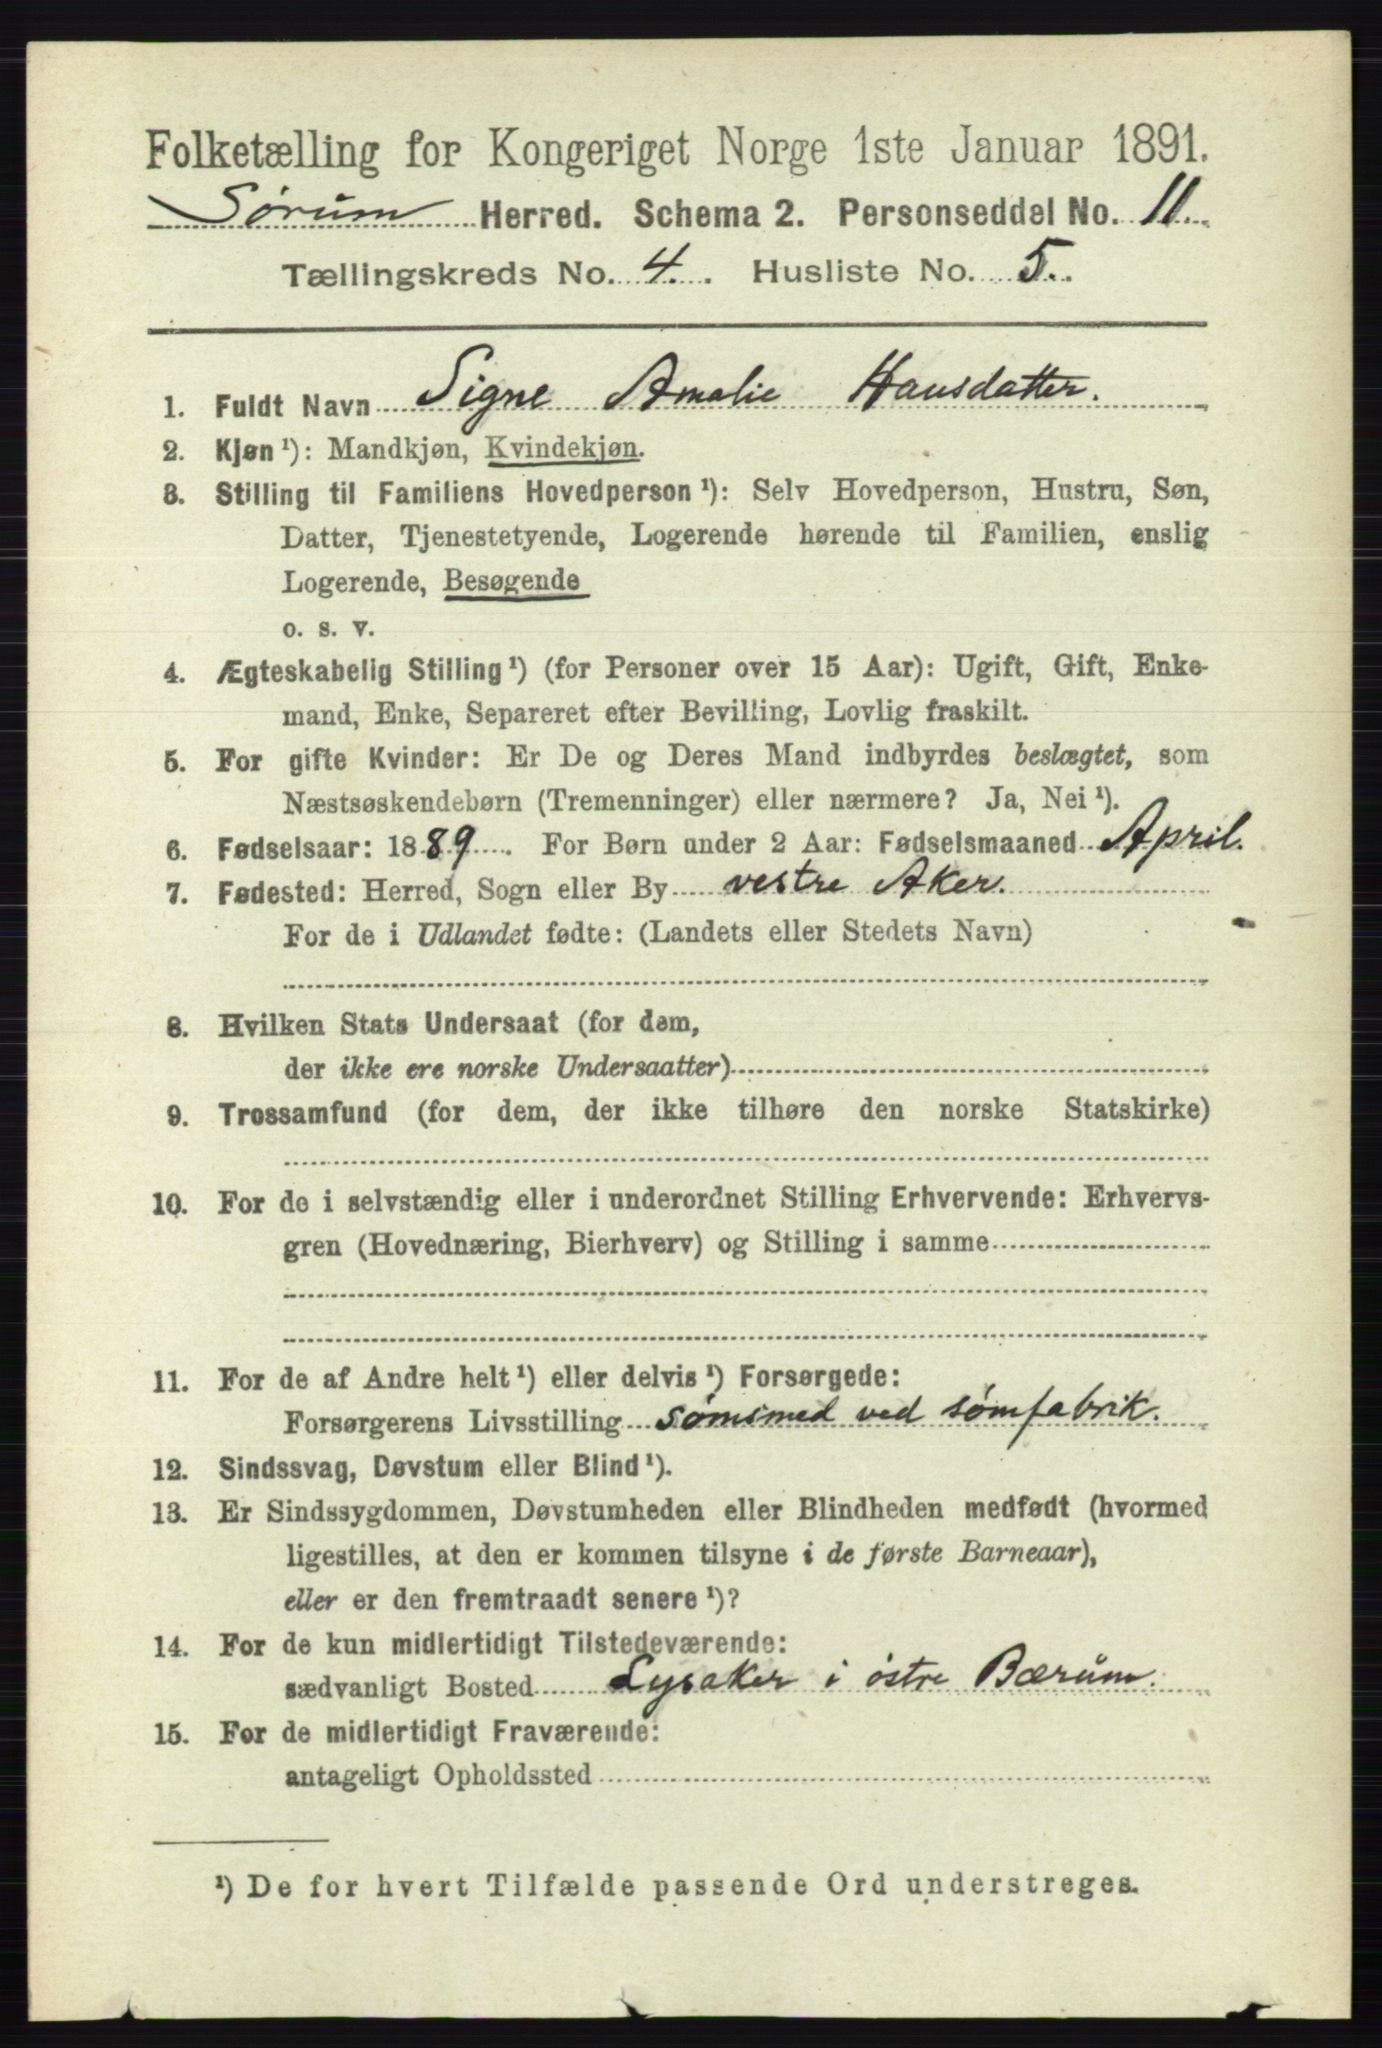 Folketælling for Kongeriget Norge 1ste Januar 1891.
Sørum Herred. Schema 2. Personseddel No. 11.
Tællingskreds No. 4. Husliste No. 5.
1. Fuldt Navn Signe Amalie Hansdatter.
2. Kjøn ¹): Mandkjøn, Kvindekjøn.
3. Stilling til Familiens Hovedperson ¹): Selv Hovedperson, Hustru, Søn,
Datter, Tjenestetyende, Logerende hørende til Familien, enslig
Logerende, Besøgende
o. s. v.
4. Ægteskabelig Stilling ¹) (for Personer over 15 Aar): Ugift, Gift, Enke-
mand, Enke, Separeret efter Bevilling, Lovlig fraskilt.
5. For gifte Kvinder: Er De og Deres Mand indbyrdes beslægtet, som
Næstsøskendebørn (Tremenninger) eller nærmere? Ja, Nei ¹).
6. Fødselsaar: 1889. For Børn under 2 Aar: Fødselsmaaned April.
7. Fødested: Herred, Sogn eller By vestre Aker.
For de i Udlandet fødte: (Landets eller Stedets Navn)
8. Hvilken Stats Undersaat (for dem,
der ikke ere norske Undersaatter)
9. Trossamfund (for dem, der ikke tilhøre den norske Statskirke)
10. For de i selvstændig eller i underordnet Stilling Erhvervende: Erhvervs-
gren (Hovednæring, Bierhverv) og Stilling i samme
11. For de af Andre helt ¹) eller delvis ¹) Forsørgede:
Forsørgerens Livsstilling sømsmed ved sømfabrik.
12. Sindssvag, Døvstum eller Blind ¹).
13. Er Sindssygdommen, Døvstumheden eller Blindheden medfødt (hvormed
ligestilles, at den er kommen tilsyne i de første Barneaar),
eller er den fremtraadt senere ¹)?
14. For de kun midlertidigt Tilstedeværende:
sædvanligt Bosted Lysaker i østre Bærum.
15. For de midlertidigt Fraværende:
antageligt Opholdssted
¹) De for hvert Tilfælde passende Ord understreges.